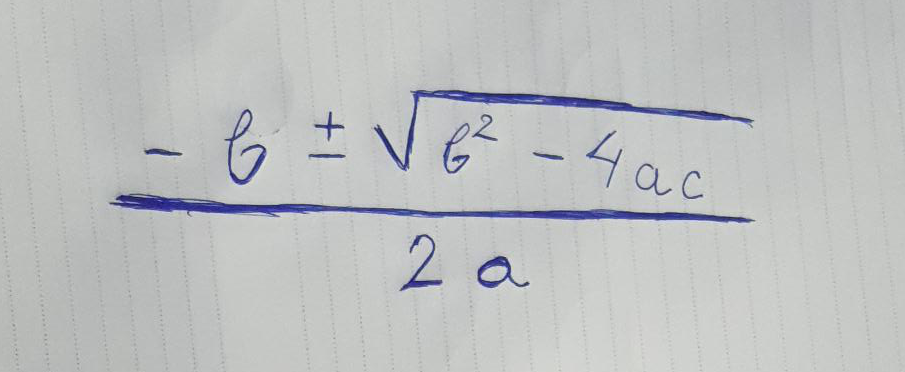 - b ± √b² - 4ac
2a